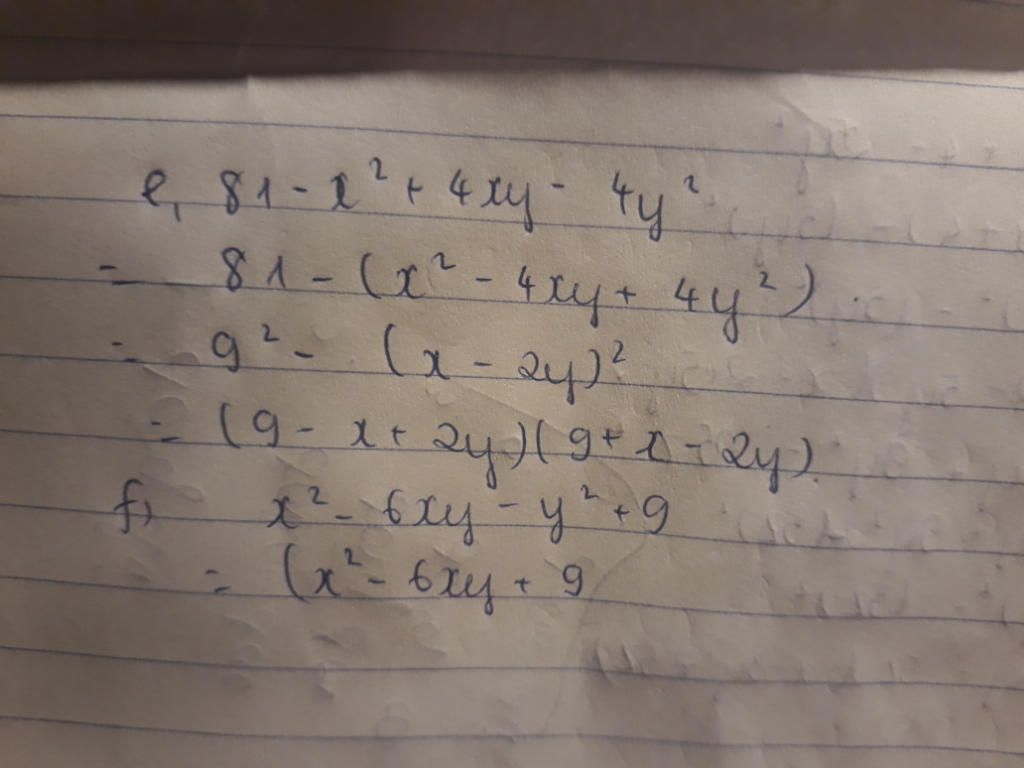 e, 81 - x² + 4xy - 4y²
= 81 - (x² - 4xy + 4y²)
= 9² - (x - 2y)²
= (9 - x + 2y)(9 + x - 2y)
f) x² - 6xy - y² + 9
= (x² - 6xy + 9